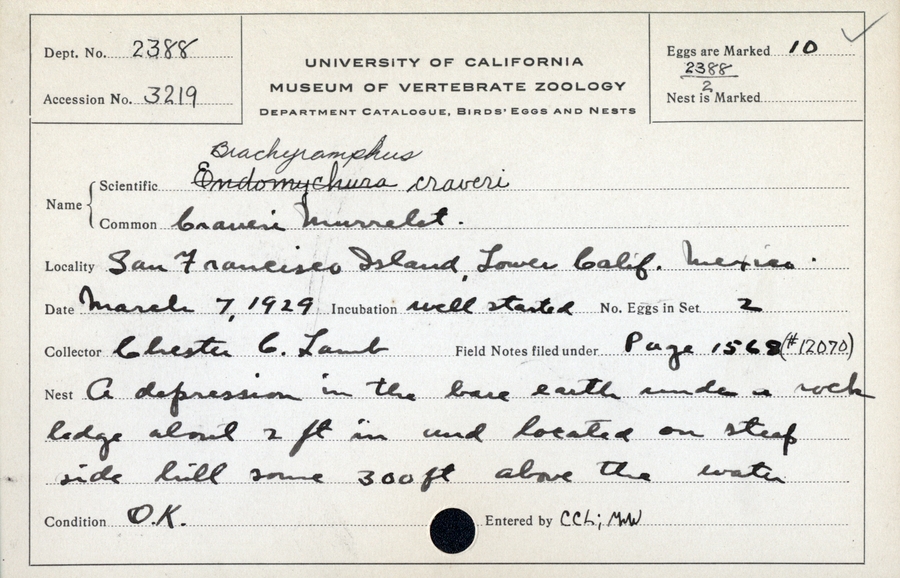 Dept. No. 2388
Accession No. 3219
UNIVERSITY OF CALIFORNIA
MUSEUM OF VERTEBRATE ZOOLOGY
DEPARTMENT CATALOGUE, BIRDS' EGGS AND NESTS
Eggs are Marked 10
2388
2
Nest is Marked
Brachyramphus
Name
Scientific Endomychura craveri
Common Craveri Murrelet.
Locality San Francisco Island, Lower Calif. Mexico.
Date March 7, 1929 Incubation well started No. Eggs in Set 2
Collector Chester C. Lamb Field Notes filed under Page 1568 (#12070)
Nest A depression in the bare earth under a rock
ledge about 2 ft in und located on steep
side hill some 300 ft above the water
Condition O.K. Entered by CCL; MW